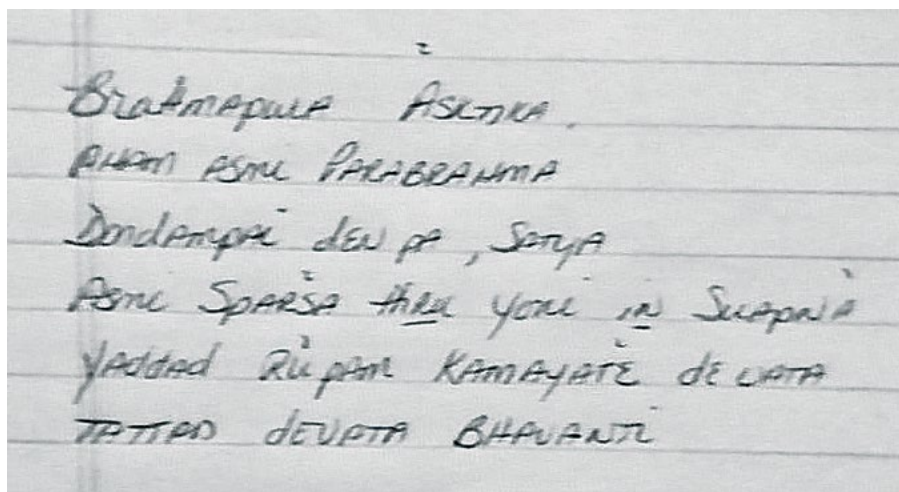 Brahmapura Asmika.
AHAM ASMI PARABRAHMA
Dondampai den pa, Satya
Asmi Sparśa thru yoni in Svapna
Yaddad Rūpam KAMAYATE devata
TATTAD devata BHAVANTI